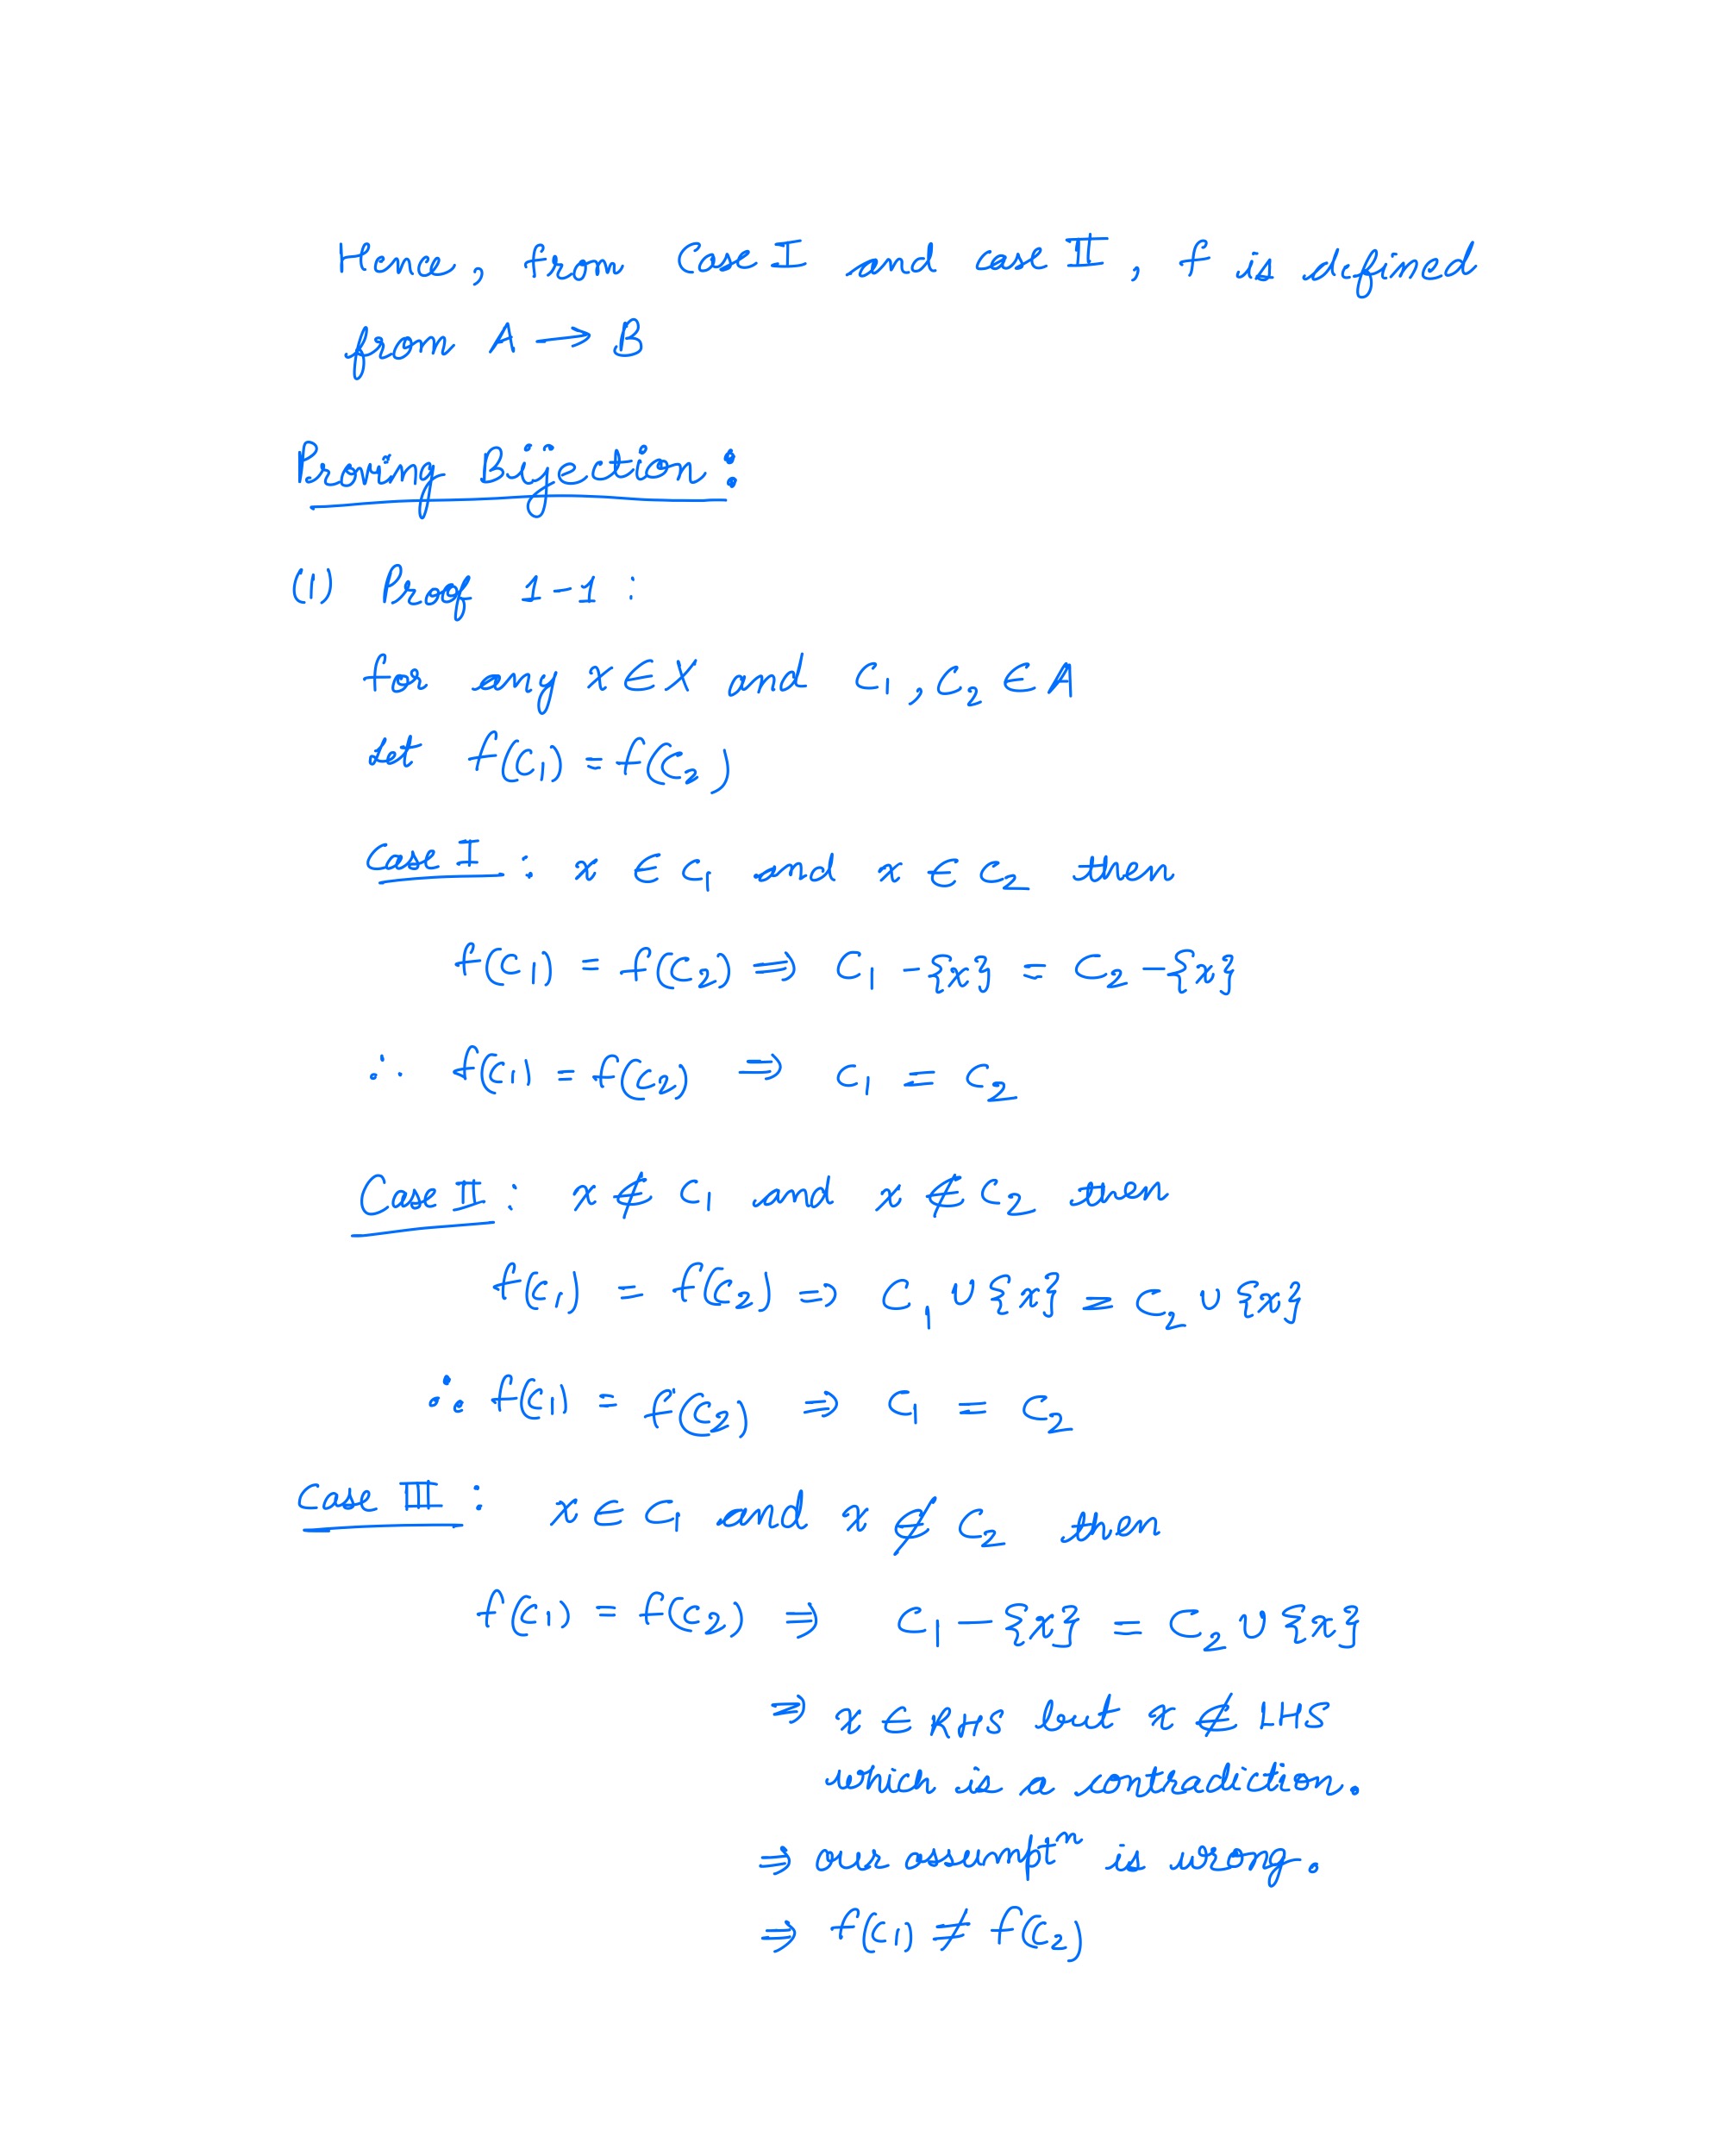 Hence, from Case I and case II, f is defined
from A → B
Proving Bijection :
(1) Proof 1-1 :
for any x ∈ X and C₁, C₂ ∈ A
Let f(C₁) = f(C₂)
Case I : x ∈ C₁ and x ∈ C₂ then
f(C₁) = f(C₂) ⇒ C₁ - {x} = C₂ - {x}
∴ f(C₁) = f(C₂) ⇒ C₁ = C₂
Case II : x ∉ C₁ and x ∉ C₂ then
f(C₁) = f(C₂) ⇒ C₁ ∪ {x} = C₂ ∪ {x}
∴ f(C₁) = f(C₂) ⇒ C₁ = C₂
Case III : x ∈ C₁ and x ∉ C₂ then
f(C₁) = f(C₂) ⇒ C₁ - {x} = C₂ ∪ {x}
⇒ x ∈ RHS but x ∉ LHS
which is a contradiction.
⇒ our assumptⁿ is wrong.
⇒ f(C₁) ≠ f(C₂)